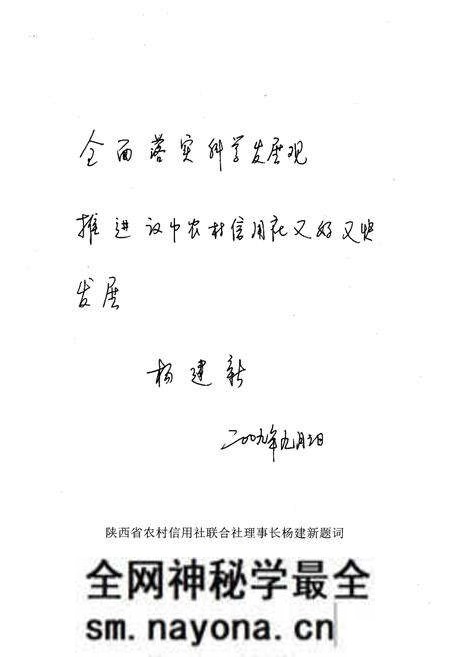 全面落实科学发展观
推进汉中农村信用社又好又快
发展
杨建新
二〇〇九年九月三日
陕西省农村信用社联合社理事长杨建新题词
全网神秘学最全
sm.nayona.cn